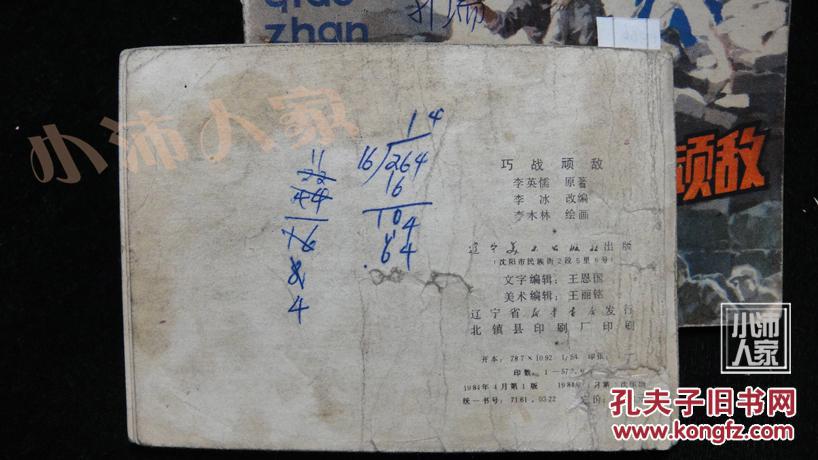 qiao
zhan
顽敌
小沛人家
14
16/264
16
104
64
11
22
44/76
8
4
巧战顽敌
李英儒 原著
李冰 改编
李木林 绘画
辽宁美术出版社出版
(沈阳市民族街2段5里6号)
文字编辑:王恩国
美术编辑:王丽铭
辽宁省新华书店发行
北镇县印刷厂印刷
开本:787×1092 1/64 印张:
印数:1—57
1984年4月第1版 198
统一书号:7161.0322 定价:
小沛
人家
孔夫子旧书网